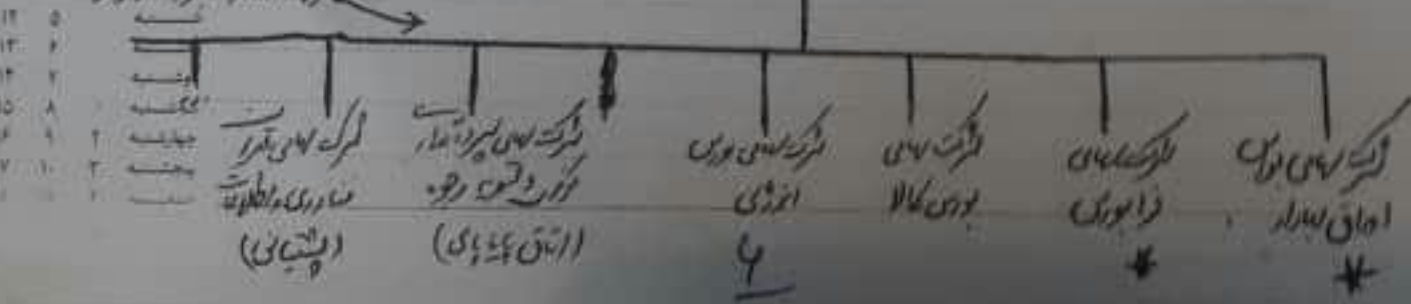 شرکت سهامی بورس
اوراق بهادار
*
شرکت سهامی
فرابورس
*
شرکت سهامی
بورس کالا
شرکت سهامی بورس
انرژی
۴
شرکت سهامی سپرده‌گذاری
مرکزی و تسویه وجوه
(اتاق پایاپای)
شرکت سهامی
فناوری و اطلاعات
(پشتیبانی)